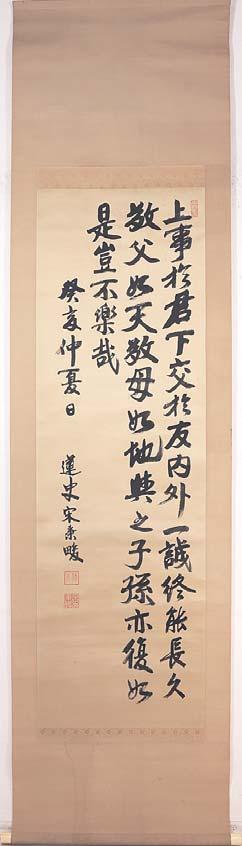 上事於君下交於友內外一誠終能長久
敬父如天敬母如地之子孫亦復如
是豈不樂哉
癸亥仲夏日
蓮史宋秉畯